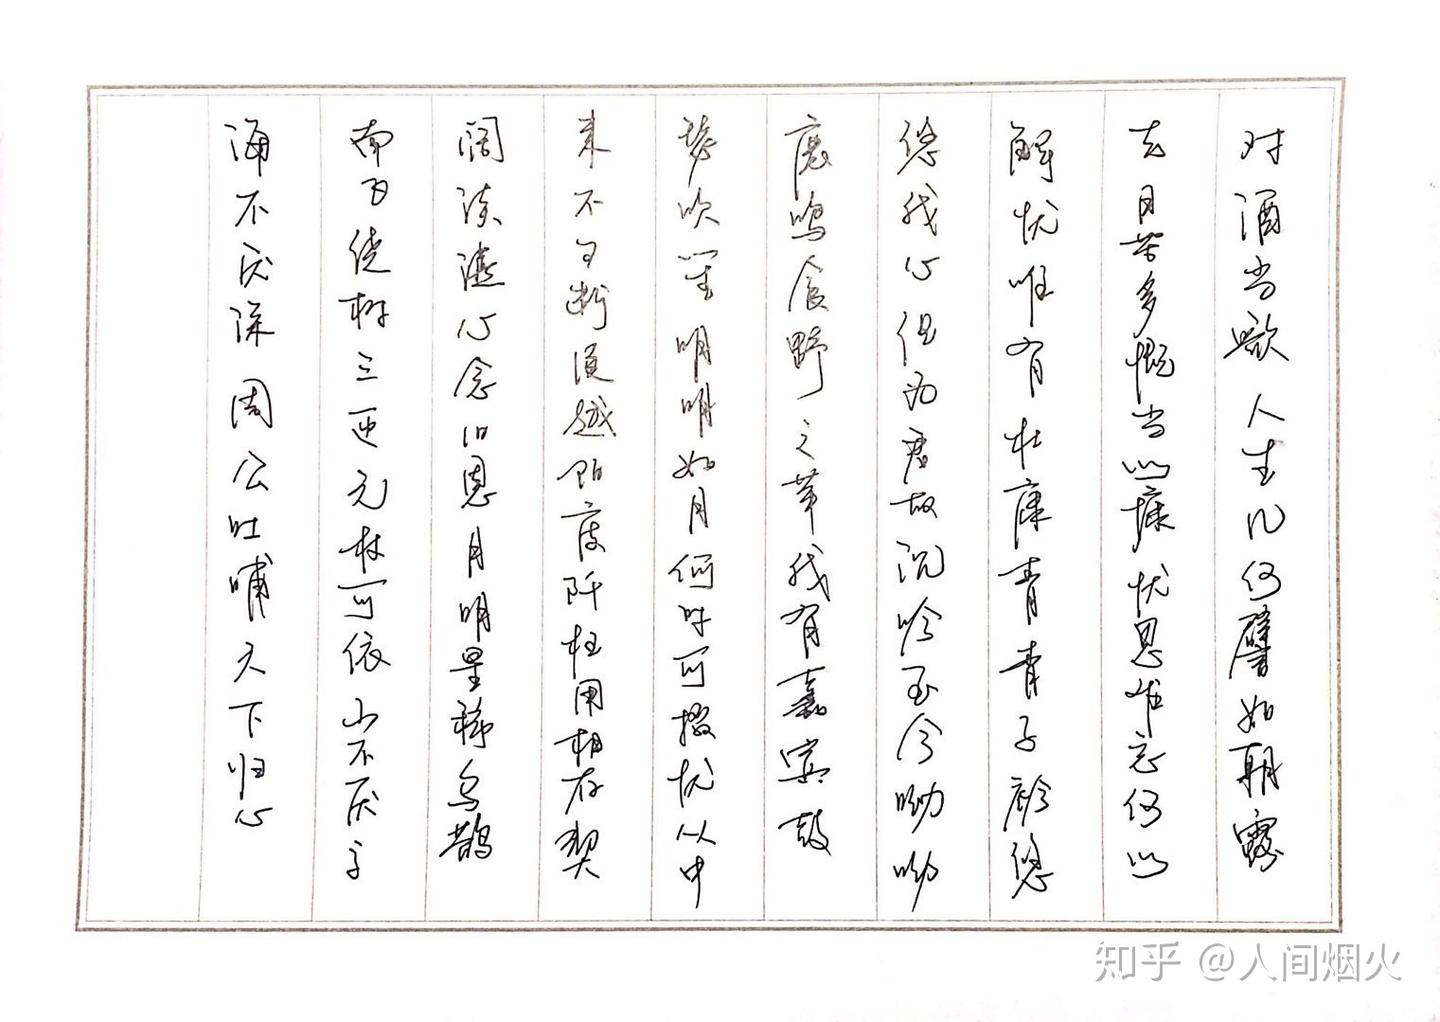 对酒当歌人生几何譬如朝露
去日苦多慨当以慷忧思难忘何以
解忧唯有杜康青青子衿悠
悠我心但为君故沉吟至今呦呦
鹿鸣食野之苹我有嘉宾鼓
瑟吹笙明明如月何时可掇忧从中
来不可断越陌度阡枉用相存契
阔谈讌心念旧恩月明星稀乌鹊
南飞绕树三匝无枝可依山不厌高
海不厌深周公吐哺天下归心
知乎 @人间烟火